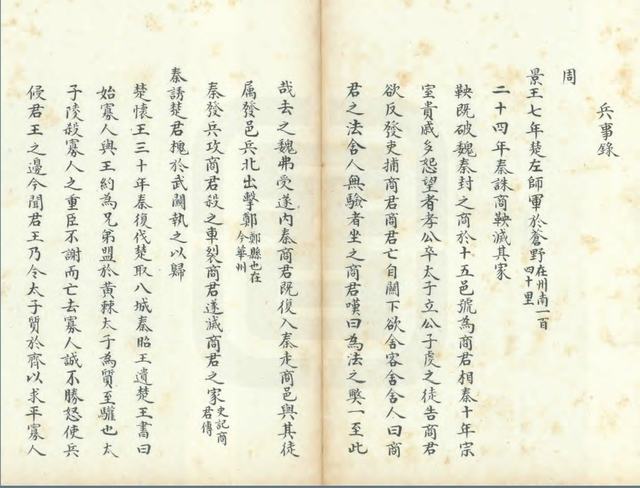 兵事錄
周
景王七年楚左師軍於蒼野在州南一百四十里
二十四年秦誅商鞅滅其家
鞅既破魏秦封之商於十五邑號為商君相秦十年宗
室貴戚多怨望者孝公卒太子立公子虔之徒告商君
欲反發吏捕商君商君亡自關下欲舍客舍舍人曰商
君之法舍人無驗者坐之商君嘆曰為法之弊一至此
哉去之魏弗受遂內秦商君既復入秦走商邑與其徒
屬發邑兵北出擊鄭鄭縣也在今華州
秦發兵攻商君殺之車裂商君遂滅商君之家史記商君傳
秦誘楚君槐於武關執之以歸
楚懷王三十年秦復伐楚取八城秦昭王遺楚王書曰
始寡人與王約為兄弟盟於黃棘太子為質至驩也太
子陵殺寡人之重臣不謝而亡去寡人誠不勝怒使兵
侵君王之邊今聞君王乃令太子質於齊以求平寡人